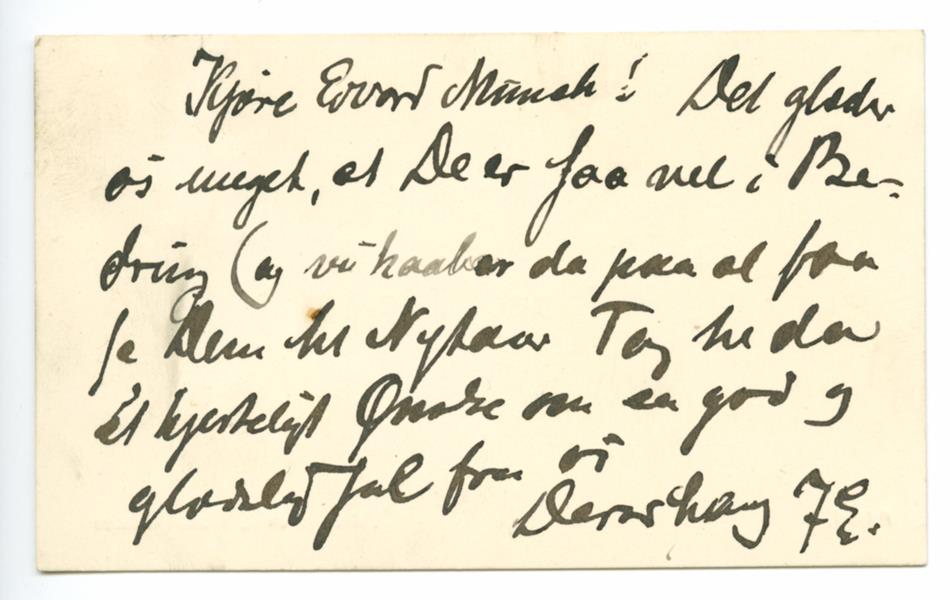 Kjøre Edvard Munch! Det glæder
os meget, at De er saa vel i Be-
dring (og vi haaber da paa at faa
se Dem til Nytaar Tag til da
Et hjerteligt Ønske om en god og
glædelig Jul fra os
Deres